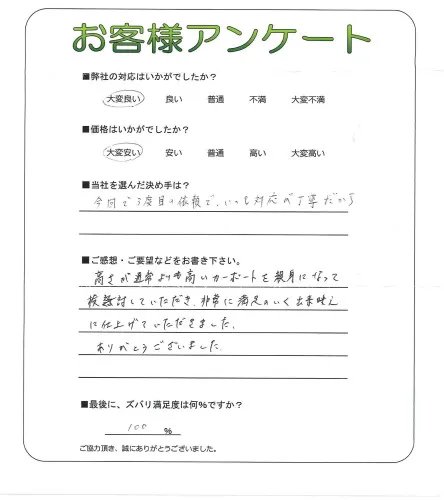 お客様アンケート
■弊社の対応はいかがでしたか?
大変良い 良い 普通 不満 大変不満
■価格はいかがでしたか?
大変安い 安い 普通 高い 大変高い
■当社を選んだ決め手は?
今回で3度目の依頼で、いつも対応が丁寧だから
■ご感想・ご要望などをお書き下さい。
高さが通常よりも高いカーポートを親身になって
検討していただき、非常に満足のいく出来映え
に仕上げていただきました。
ありがとうございました
■最後に、ズバリ満足度は何%ですか?
100 %
ご協力頂き、誠にありがとうございました。